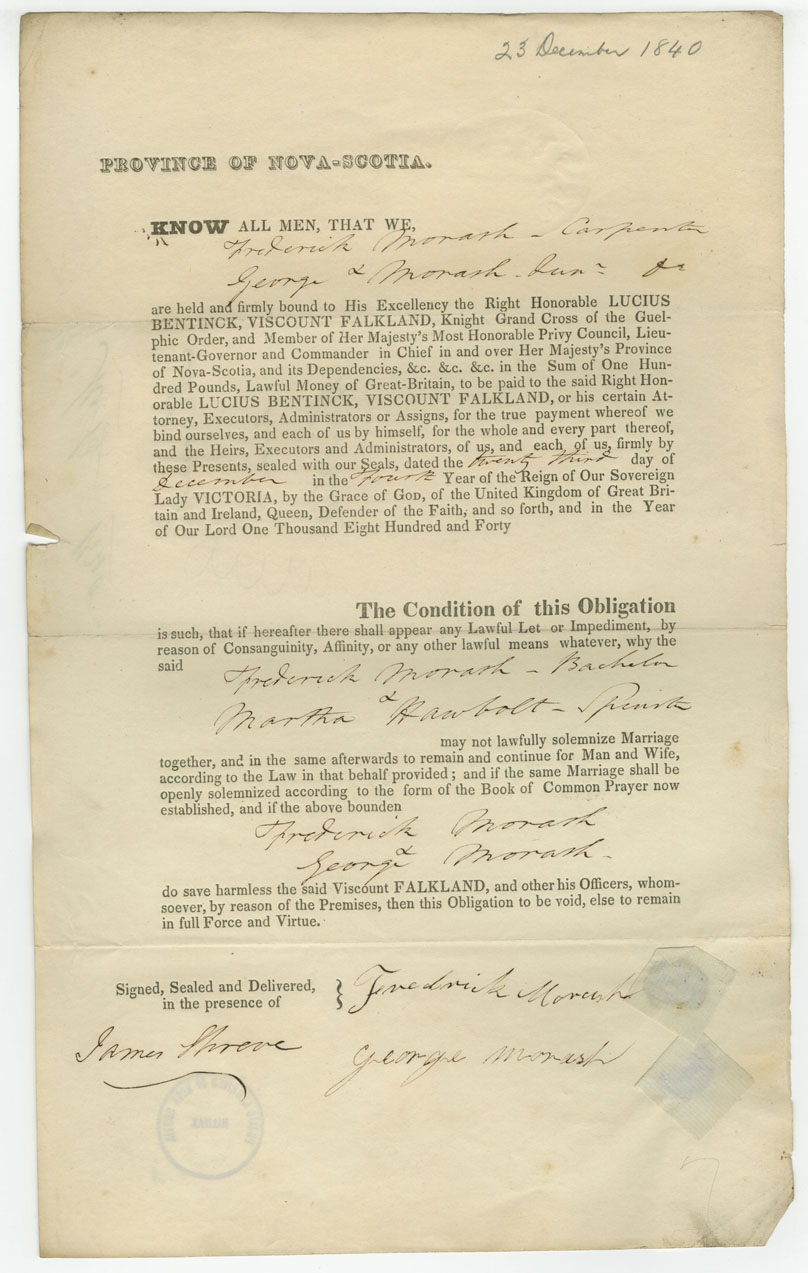 23 December 1840
PROVINCE OF NOVA-SCOTIA.
KNOW ALL MEN, THAT WE,
Frederick Morash - Carpenter
&
George Morash Junr do
are held and firmly bound to His Excellency the Right Honorable LUCIUS
BENTINCK, VISCOUNT FALKLAND, Knight Grand Cross of the Guel-
phic Order, and Member of Her Majesty's Most Honorable Privy Council, Lieu-
tenant-Governor and Commander in Chief in and over Her Majesty's Province
of Nova-Scotia, and its Dependencies, &c. &c. &c. in the Sum of One Hun-
dred Pounds, Lawful Money of Great-Britain, to be paid to the said Right Hon-
orable LUCIUS BENTINCK, VISCOUNT FALKLAND, or his certain At-
torney, Executors, Administrators or Assigns, for the true payment whereof we
bind ourselves, and each of us by himself, for the whole and every part thereof,
and the Heirs, Executors and Administrators, of us, and each of us, firmly by
these Presents, sealed with our Seals, dated the twenty third day of
December in the Fourth Year of the Reign of Our Sovereign
Lady VICTORIA, by the Grace of GOD, of the United Kingdom of Great Bri-
tain and Ireland, Queen, Defender of the Faith, and so forth, and in the Year
of Our Lord One Thousand Eight Hundred and Forty
The Condition of this Obligation
is such, that if hereafter there shall appear any Lawful Let or Impediment, by
reason of Consanguinity, Affinity, or any other lawful means whatever, why the
said Frederick Morash - Bachelor
&
Martha Hawbolt - Spinster
may not lawfully solemnize Marriage
together, and in the same afterwards to remain and continue for Man and Wife,
according to the Law in that behalf provided; and if the same Marriage shall be
openly solemnized according to the form of the Book of Common Prayer now
established, and if the above bounden
Frederick Morash
&
George Morash -
do save harmless the said Viscount FALKLAND, and other his Officers, whom-
soever, by reason of the Premises, then this Obligation to be void, else to remain
in full Force and Virtue.
Signed, Sealed and Delivered, } Fredrick Morash
in the presence of
James Shreve George Morash
HALIFAX